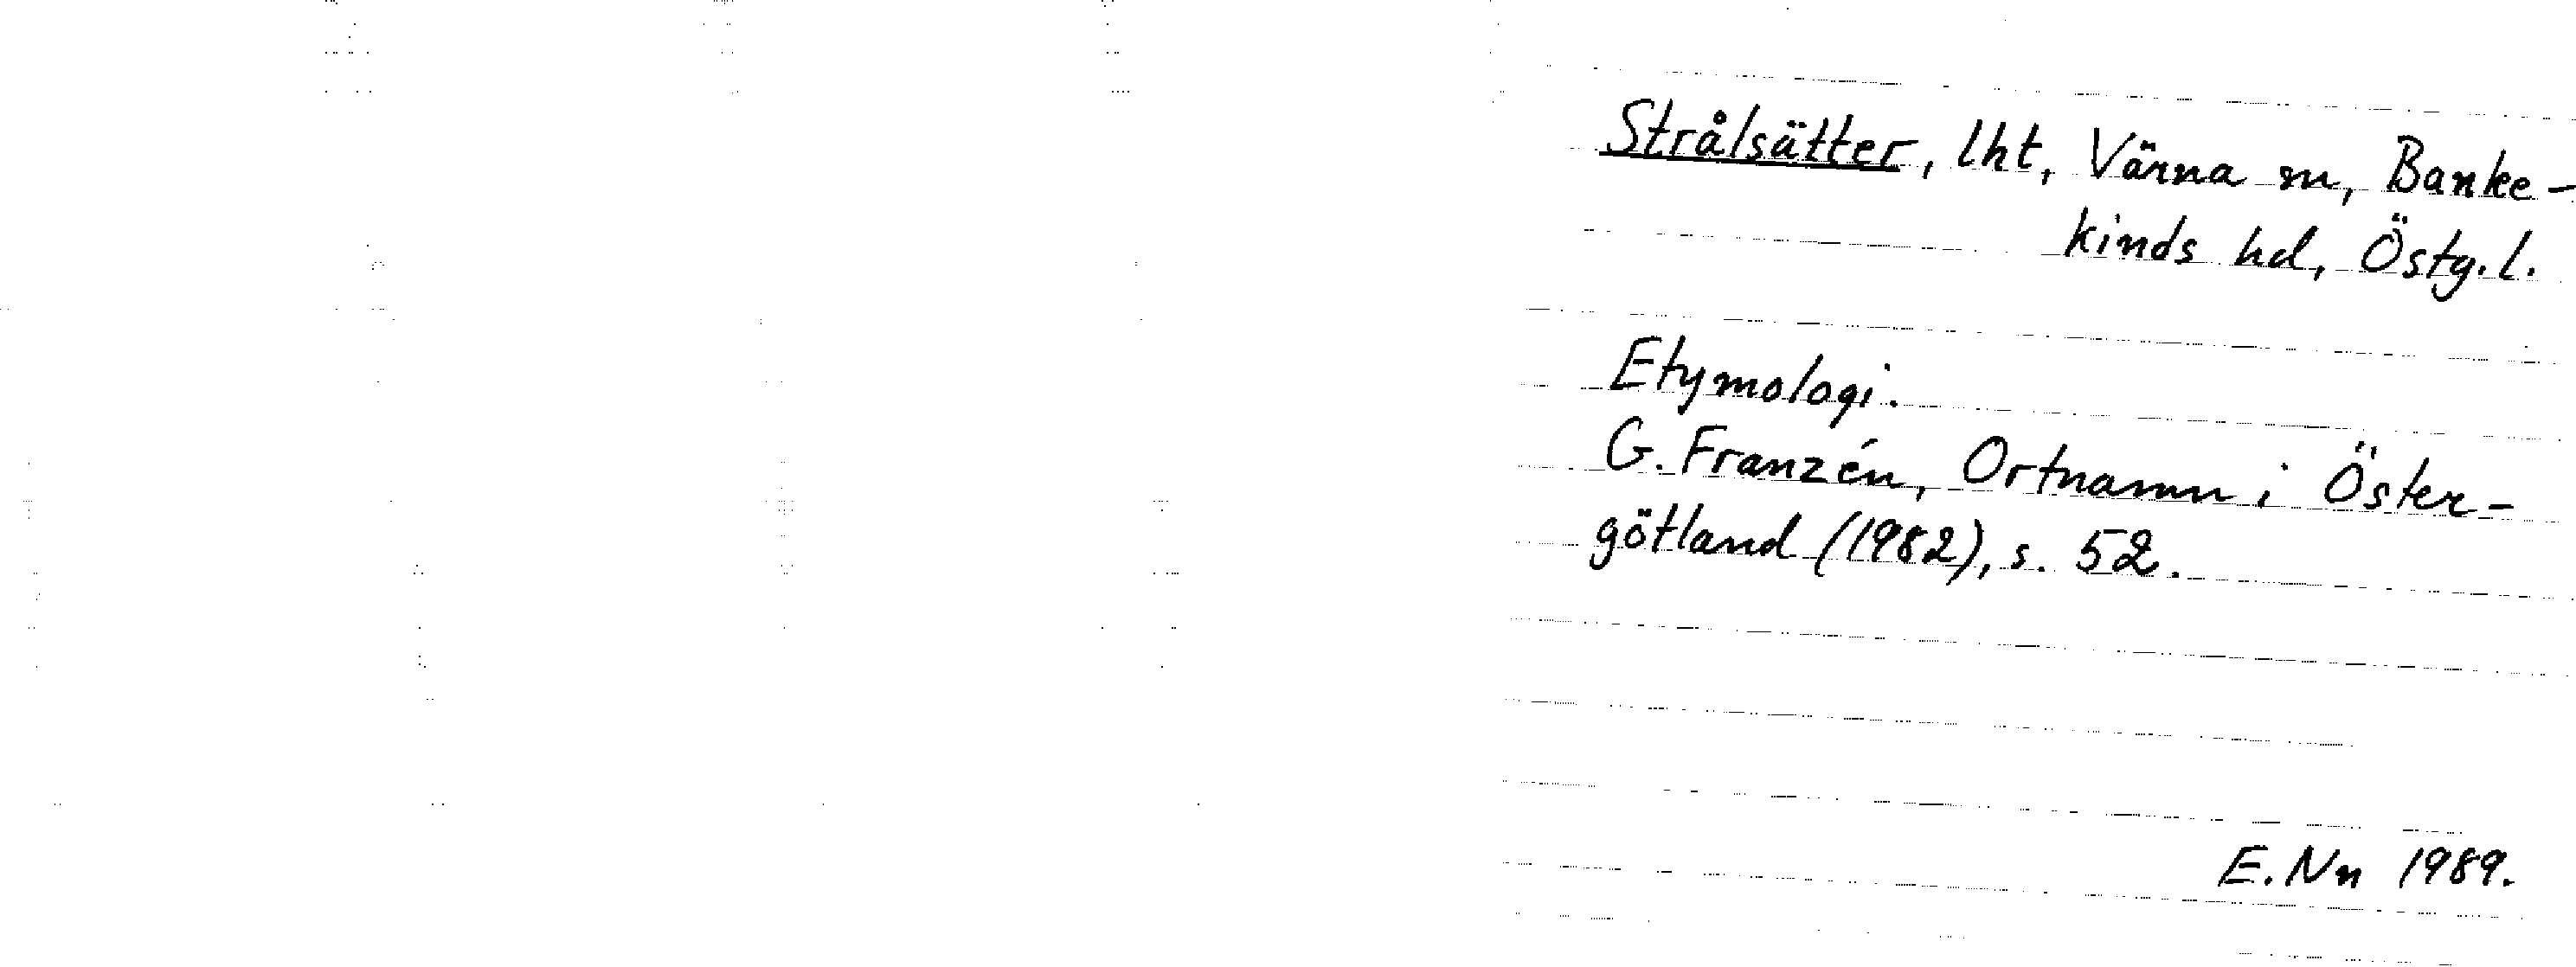 Strålsätter, lht, Värna sn, Banke-
kinds hd, Östg.l.
Etymologi.
G. Franzén, Ortnamn i Öster-
götland (1982), s. 52.
E. Nn 1989.